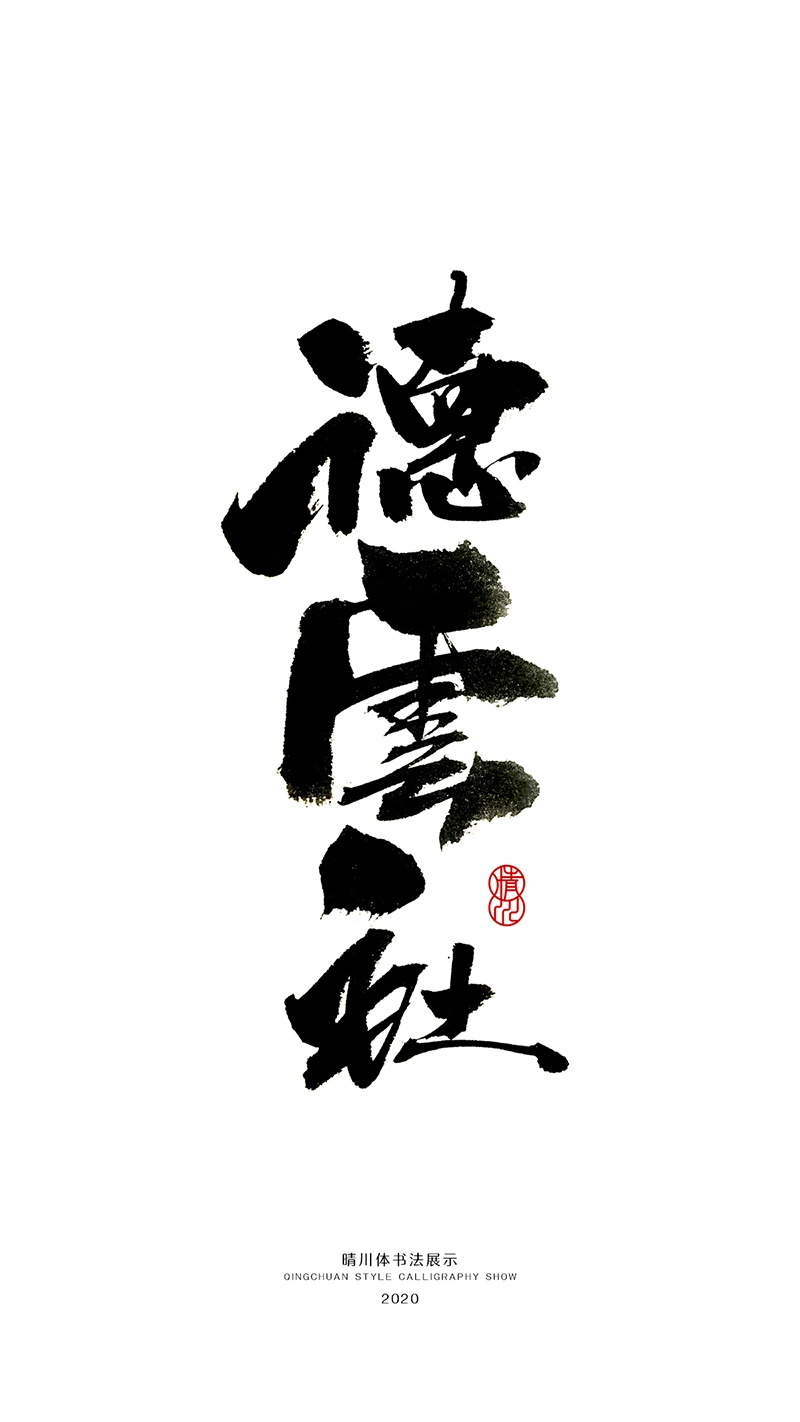 德雲社
晴川
晴川体书法展示
QINGCHUAN STYLE CALLIGRAPHY SHOW
2020